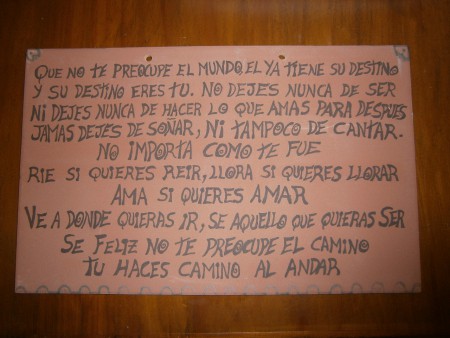 QUE NO TE PREOCUPE EL MUNDO, EL YA TIENE SU DESTINO
Y SU DESTINO ERES TU. NO DEJES NUNCA DE SER
NI DEJES NUNCA DE HACER LO QUE AMAS PARA DESPUES
JAMAS DEJES DE SOÑAR, NI TAMPOCO DE CANTAR.
NO IMPORTA COMO TE FUE
RIE SI QUIERES REIR, LLORA SI QUIERES LLORAR
AMA SI QUIERES AMAR
VE A DONDE QUIERAS IR, SE AQUELLO QUE QUIERAS SER
SE FELIZ NO TE PREOCUPE EL CAMINO
TU HACES CAMINO AL ANDAR